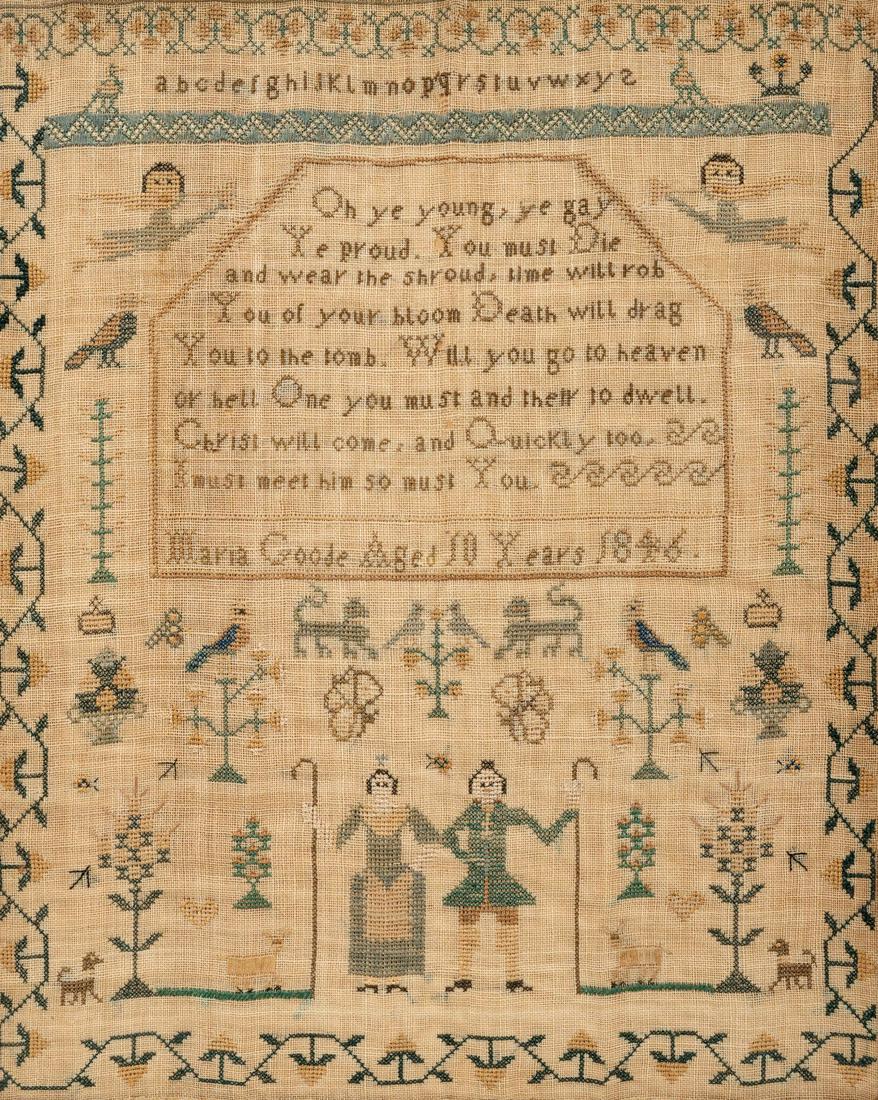 abcdefghiJKlmnopqrstuvwxyz
Oh ye young, ye gay
Ye proud. You must Die
and wear the shroud, time will rob
You of your bloom Death will drag
You to the tomb. Will you go to heaven
or hell One you must and their to dwell.
Christ will come, and Quickly too,
I must meet him so must You.
Maria Goode Aged 10 Years 1846.